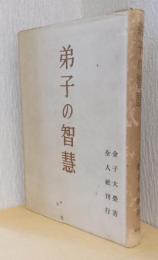 弟子の智慧
金子大榮著
全人社刊行